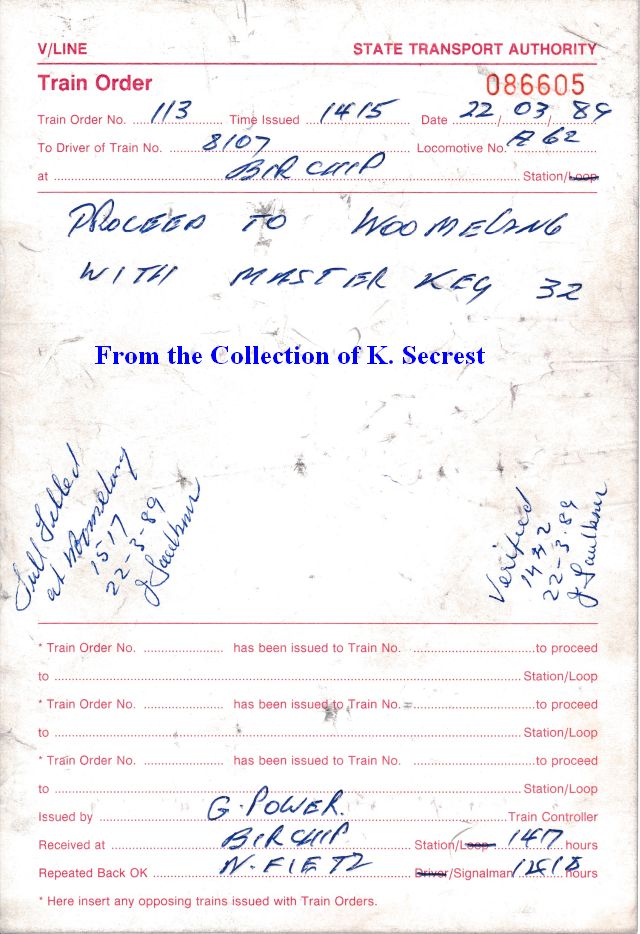 V/LINE STATE TRANSPORT AUTHORITY
Train Order 086605
Train Order No. 113 Time Issued 1415 Date 22/03/89
To Driver of Train No. 8107 Locomotive No. A62
at BIRCHIP Station/Loop
PROCEED TO WOOMELANG
WITH MASTER KEY 32
From the Collection of K. Secrest
Full Filled
at Woomelang
1517
22-3-89
J Faulkner
Verified
1442
22-3-89
J Faulkner
* Train Order No. has been issued to Train No. to proceed
to Station/Loop
* Train Order No. has been issued to Train No. to proceed
to Station/Loop
* Train Order No. has been issued to Train No. to proceed
to Station/Loop
Issued by G. POWER. Train Controller
Received at BIRCHIP Station/Loop 1417 hours
Repeated Back OK N. FIETZ Driver/Signalman 1418 hours
* Here insert any opposing trains issued with Train Orders.